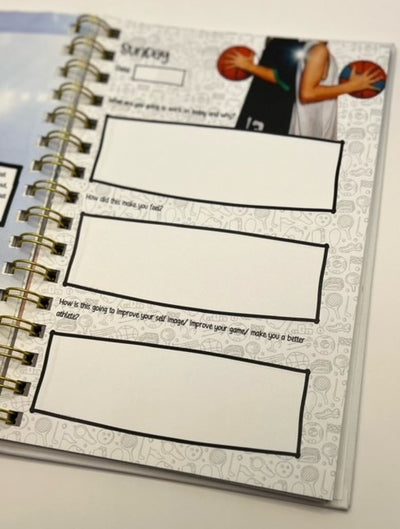 Sunday
Date:
What are you going to work on today and why?
How did this make you feel?
How is this going to improve your self image/ improve your game/ make you a better
athlete?